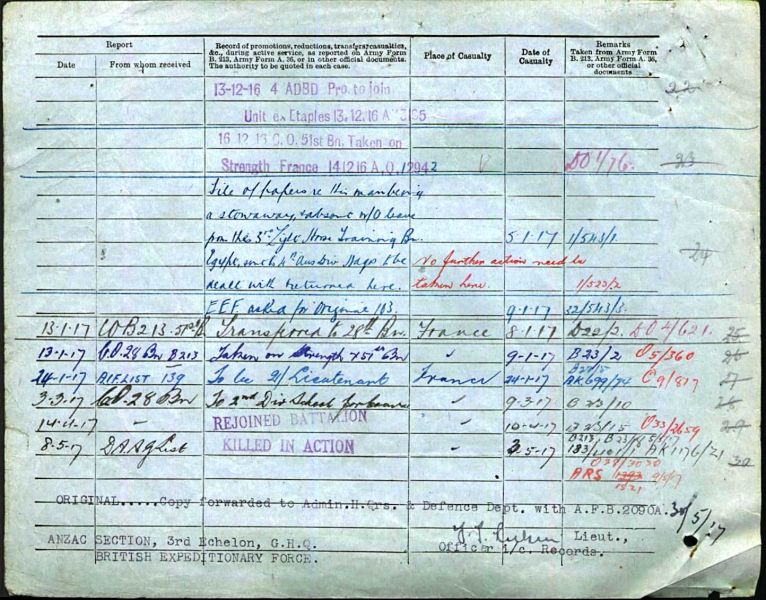 Report
Record of promotions, reductions, transfers, casualties, &c., during active service, as reported on Army Form B. 213, Army Form A. 36, or in other official documents. The authority to be quoted in each case.
Place of Casualty
Date of Casualty
Remarks
Taken from Army Form B. 213, Army Form A. 36, or other official documents
Date
From whom received
13-12-16 4 ADBD Pro. to join
22
Unit ex Etaples 13.12.16
16.12.16 C.O. 51st Bn. Taken on
Strength France 14 12 16 A.O.
DO 4/76.
23
File of papers re this man being
a stowaway, & absent w/o leave
from the 3rd Light Horse Training Bn.
5-1-17
1/543/1.
24
Egypt, sent 4th Aus Div Hqrs to be
No further action need be
dealt with returned here.
taken here.
1/523/2
EEF asked for Original 103
9-1-17
32/543/3.
13-1-17 OB213 51st Bn Transferred to 28th Bn. France 8-1-17 B22/2. DO4/621. 25
13-1-17 CO.28 Bn B213 Taken on Strength ex 51st Bn " 9-1-17 B23/2 O5/360 26
24-1-17 AIF LIST 139 To be 2/Lieutenant France 24-1-17 AK699/74 C9/817 27
3-3-17 CO. 28 Bn To 2nd Div School for " 9-3-17 B23/10 28
14-4-17 - REJOINED BATTALION " 10-4-17 B23/15 O33/2659 29
8-5-17 D.A.A.G List KILLED IN ACTION " 3-5-17 AK1176/21 30
ARS
1521
ORIGINAL.....Copy forwarded to Admin.H.Qrs. & Defence Dept. with A.F.B.2090A. 30/5/17
Lieut.,
ANZAC SECTION, 3rd Echelon, G.H.Q.
Officer i/c. Records.
BRITISH EXPEDITIONARY FORCE.